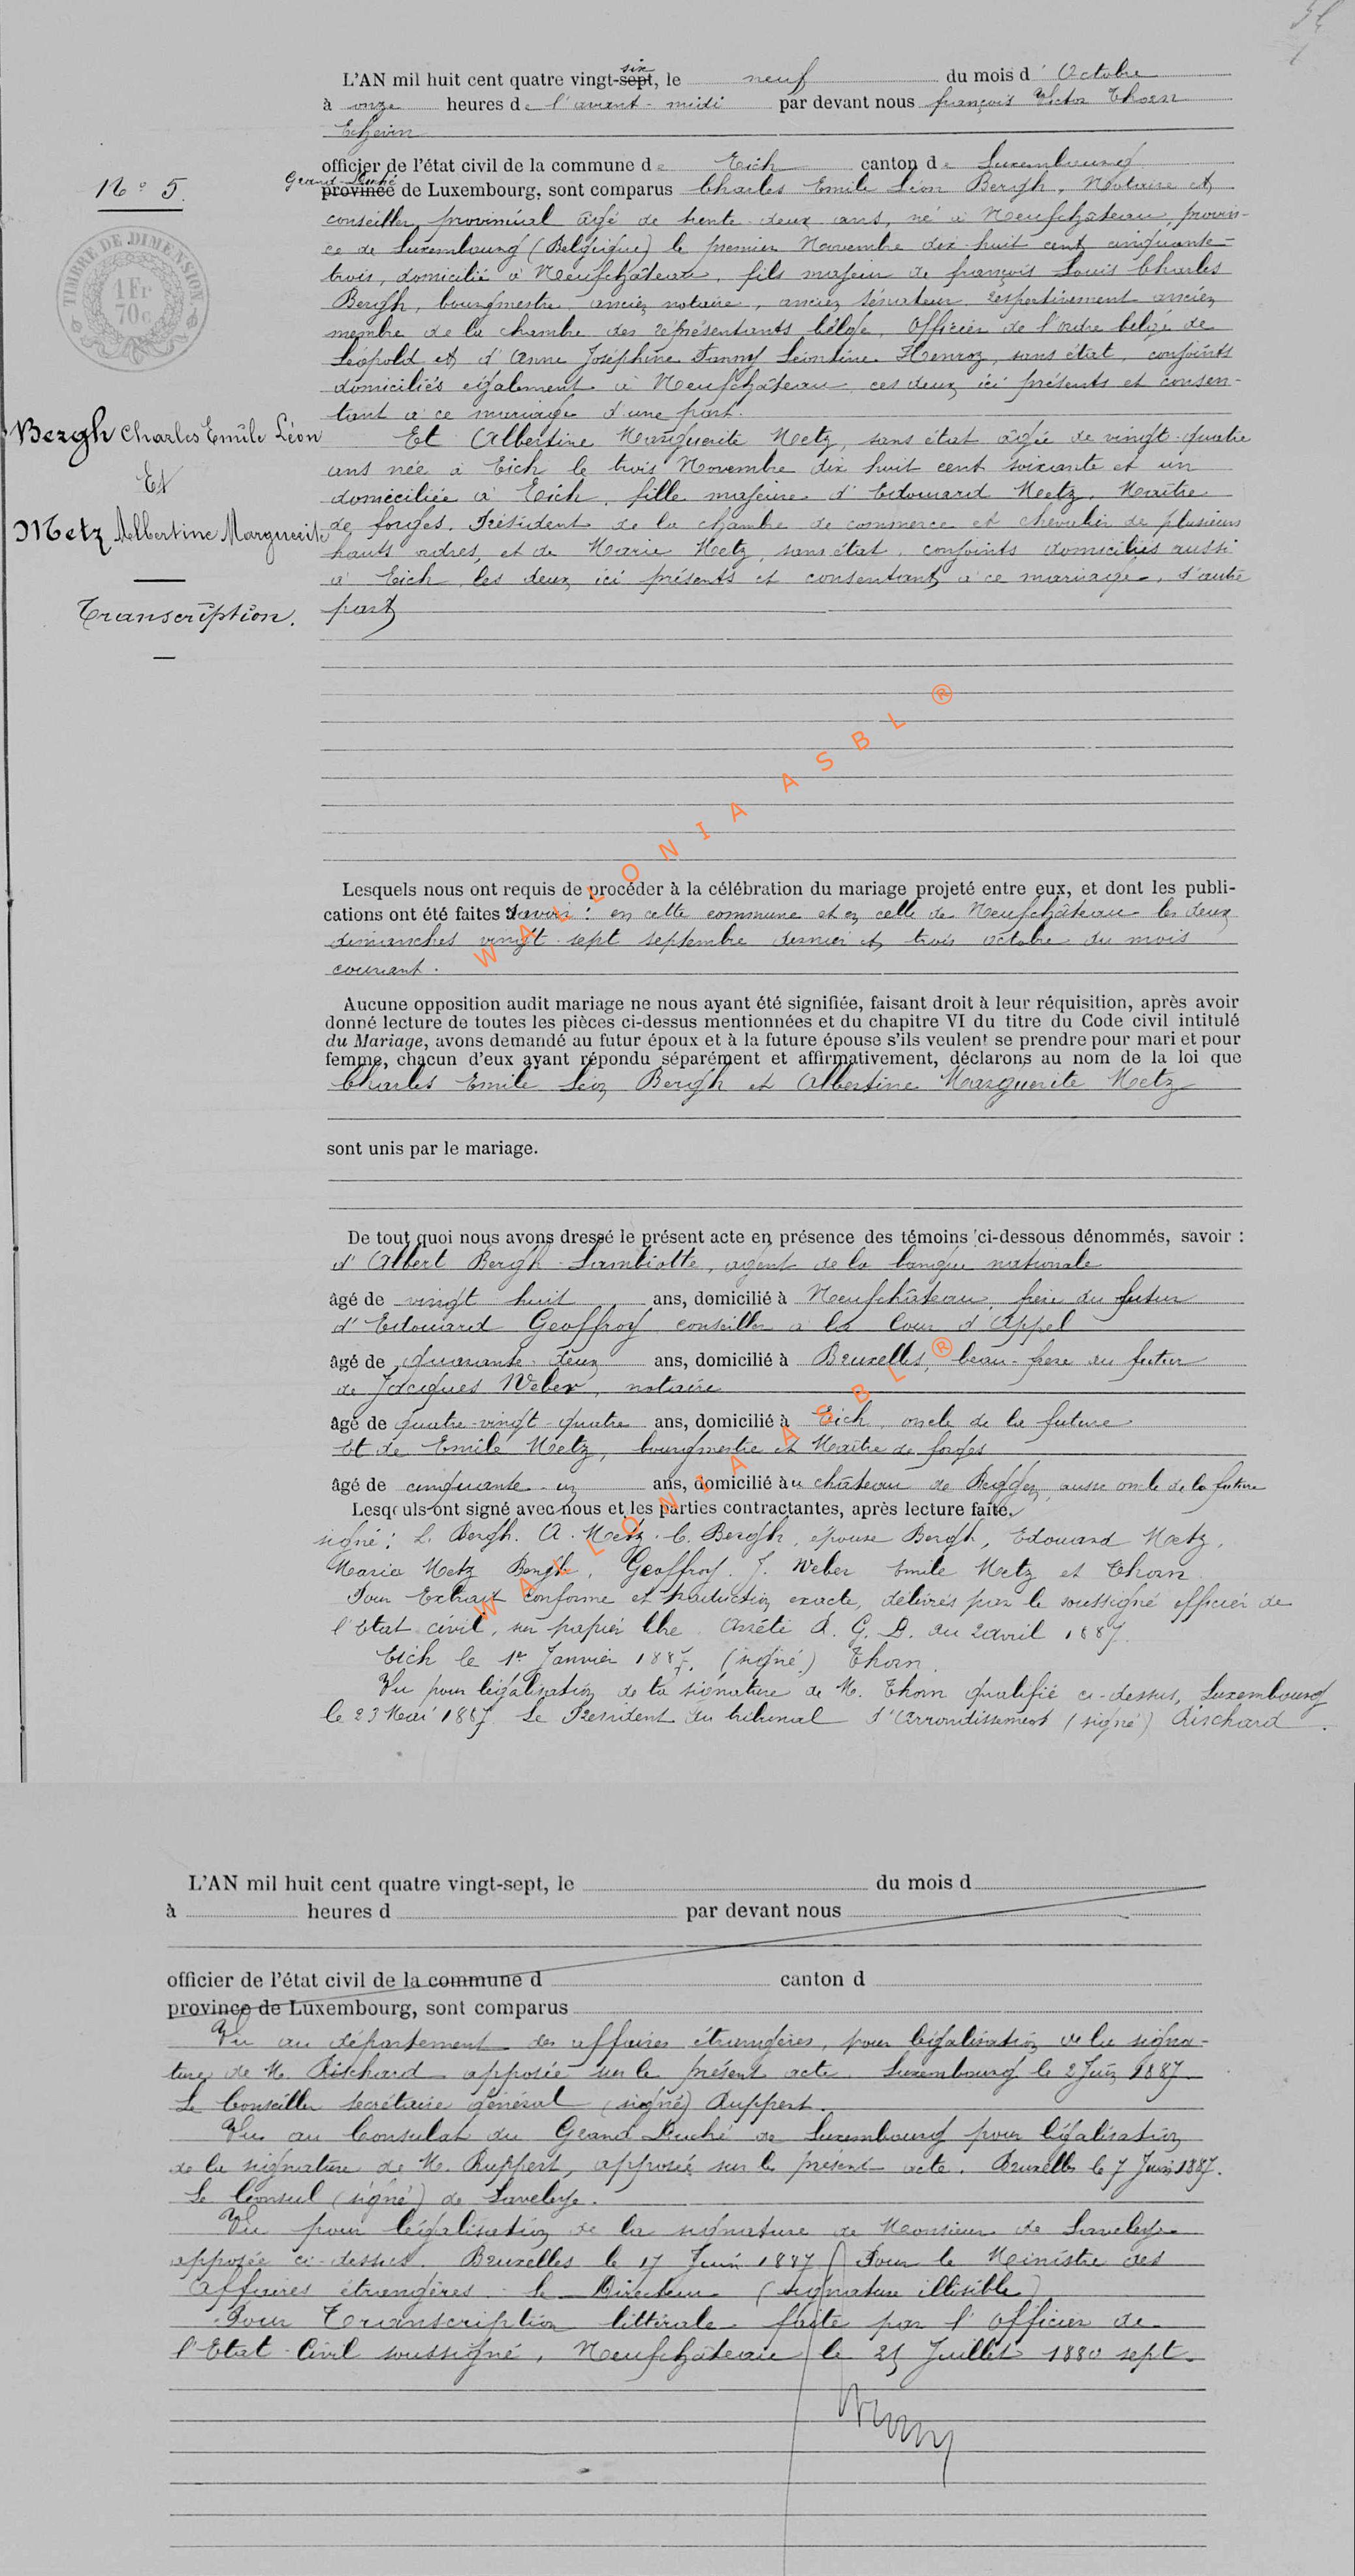 L'AN mil huit cent quatre vingt-sept, le neuf du mois d'Octobre
six
à onze heures de l'avant-midi par devant nous françois Victor Thorn
Echevin
officier de l'état civil de la commune de Eich canton de Luxembourg
Grand-Duché
province de Luxembourg, sont comparus Charles Emile Léon Bergh, Notaire et
conseiller provincial âgé de trente-deux ans, né à Neufchâteau, provin-
ce de Luxembourg (Belgique) le premier Novembre dix huit cent cinquante-
trois, domicilié à Neufchâteau, fils majeur de françois Louis Charles
Bergh, bourgmestre ancien notaire, ancien sénateur respectivement ancien
membre de la chambre des représentants belge, Officier de l'ordre belge de
Léopold et d'Anne Joséphine Fanny Léontine Henroz, sans état, conjoints
domiciliés également à Neufchâteau, ces deux ici présents et consen-
tant à ce mariage d'une part.
Et Albertine Marguerite Metz, sans état âgée de vingt-quatre
ans née à Eich le trois Novembre dix huit cent soixante et un
domiciliée à Eich, fille majeure d'Edouard Metz, Maître
de forges, Président de la chambre de commerce et chevalier de plusieurs
hauts ordres, et de Marie Metz, sans état, conjoints domiciliés aussi
à Eich, les deux ici présents et consentant à ce mariage, d'autre
part
N° 5.
TIMBRE DE DIMENSION
1 Fr
70c
Bergh Charles Emile Léon
Et
Metz Albertine Marguerite
Transcription.
WALLONIA ASBL ®
Lesquels nous ont requis de procéder à la célébration du mariage projeté entre eux, et dont les publi-
cations ont été faites savoir : en cette commune et en celle de Neufchâteau les deux
dimanches vingt-sept septembre dernier et trois octobre du mois
courant.
Aucune opposition audit mariage ne nous ayant été signifiée, faisant droit à leur réquisition, après avoir
donné lecture de toutes les pièces ci-dessus mentionnées et du chapitre VI du titre du Code civil intitulé
du Mariage, avons demandé au futur époux et à la future épouse s'ils veulent se prendre pour mari et pour
femme, chacun d'eux ayant répondu séparément et affirmativement, déclarons au nom de la loi que
Charles Emile Léon Bergh et Albertine Marguerite Metz
sont unis par le mariage.
De tout quoi nous avons dressé le présent acte en présence des témoins ci-dessous dénommés, savoir :
d'Albert Bergh-Lambiotte, agent de la banque nationale
âgé de vingt huit ans, domicilié à Neufchâteau, frère du futur
d'Edouard Geoffroy conseiller à la Cour d'Appel
âgé de quarante-deux ans, domicilié à Bruxelles, beau-frère du futur
de Jacques Weber, notaire
âgé de quatre-vingt-quatre ans, domicilié à Eich, oncle de la future
Et de Emile Metz, bourgmestre et Maître de forges
âgé de cinquante-un ans, domicilié au château de Beggen, aussi oncle de la future
Lesquels ont signé avec nous et les parties contractantes, après lecture faite.
signé : L. Bergh. A. Metz. C. Bergh, épouse Bergh, Edouard Metz,
Marie Metz Bergh, Geoffroy. J. Weber Emile Metz et Thorn.
Pour Extrait conforme et traduction exacte, délivrés par le soussigné officier de
l'Etat civil, sur papier libre. Arrêté R. G. D. du 2 avril 1887.
Eich le 1er Janvier 1887. (signé) Thorn.
Vu pour légalisation de la signature de M. Thorn qualifié ci-dessus, Luxembourg
le 23 Mai 1887. Le Président du tribunal d'Arrondissement (signé) Rischard.
WALLONIA ASBL ®
L'AN mil huit cent quatre vingt-sept, le du mois d
à heures d par devant nous
officier de l'état civil de la commune d canton d
province de Luxembourg, sont comparus
Vu au département des affaires étrangères, pour légalisation de la signa-
ture de M. Rischard apposée sur le présent acte. Luxembourg le 2 Juin 1887.
Le Conseiller secrétaire général (signé) Ruppert.
Vu au Consulat du Grand Duché de Luxembourg pour légalisation
de la signature de M. Ruppert, apposée sur le présent acte. Bruxelles le 7 Juin 1887.
Le Consul (signé) de Laveleye.
Vu pour légalisation de la signature de Monsieur de Laveleye
apposée ci-dessus. Bruxelles le 17 Juin 1887 Pour le Ministre des
Affaires étrangères. Le Directeur (signature illisible)
Pour Transcription littérale faite par l'officier de
l'Etat-Civil soussigné, Neufchâteau le 25 Juillet 1880 sept.